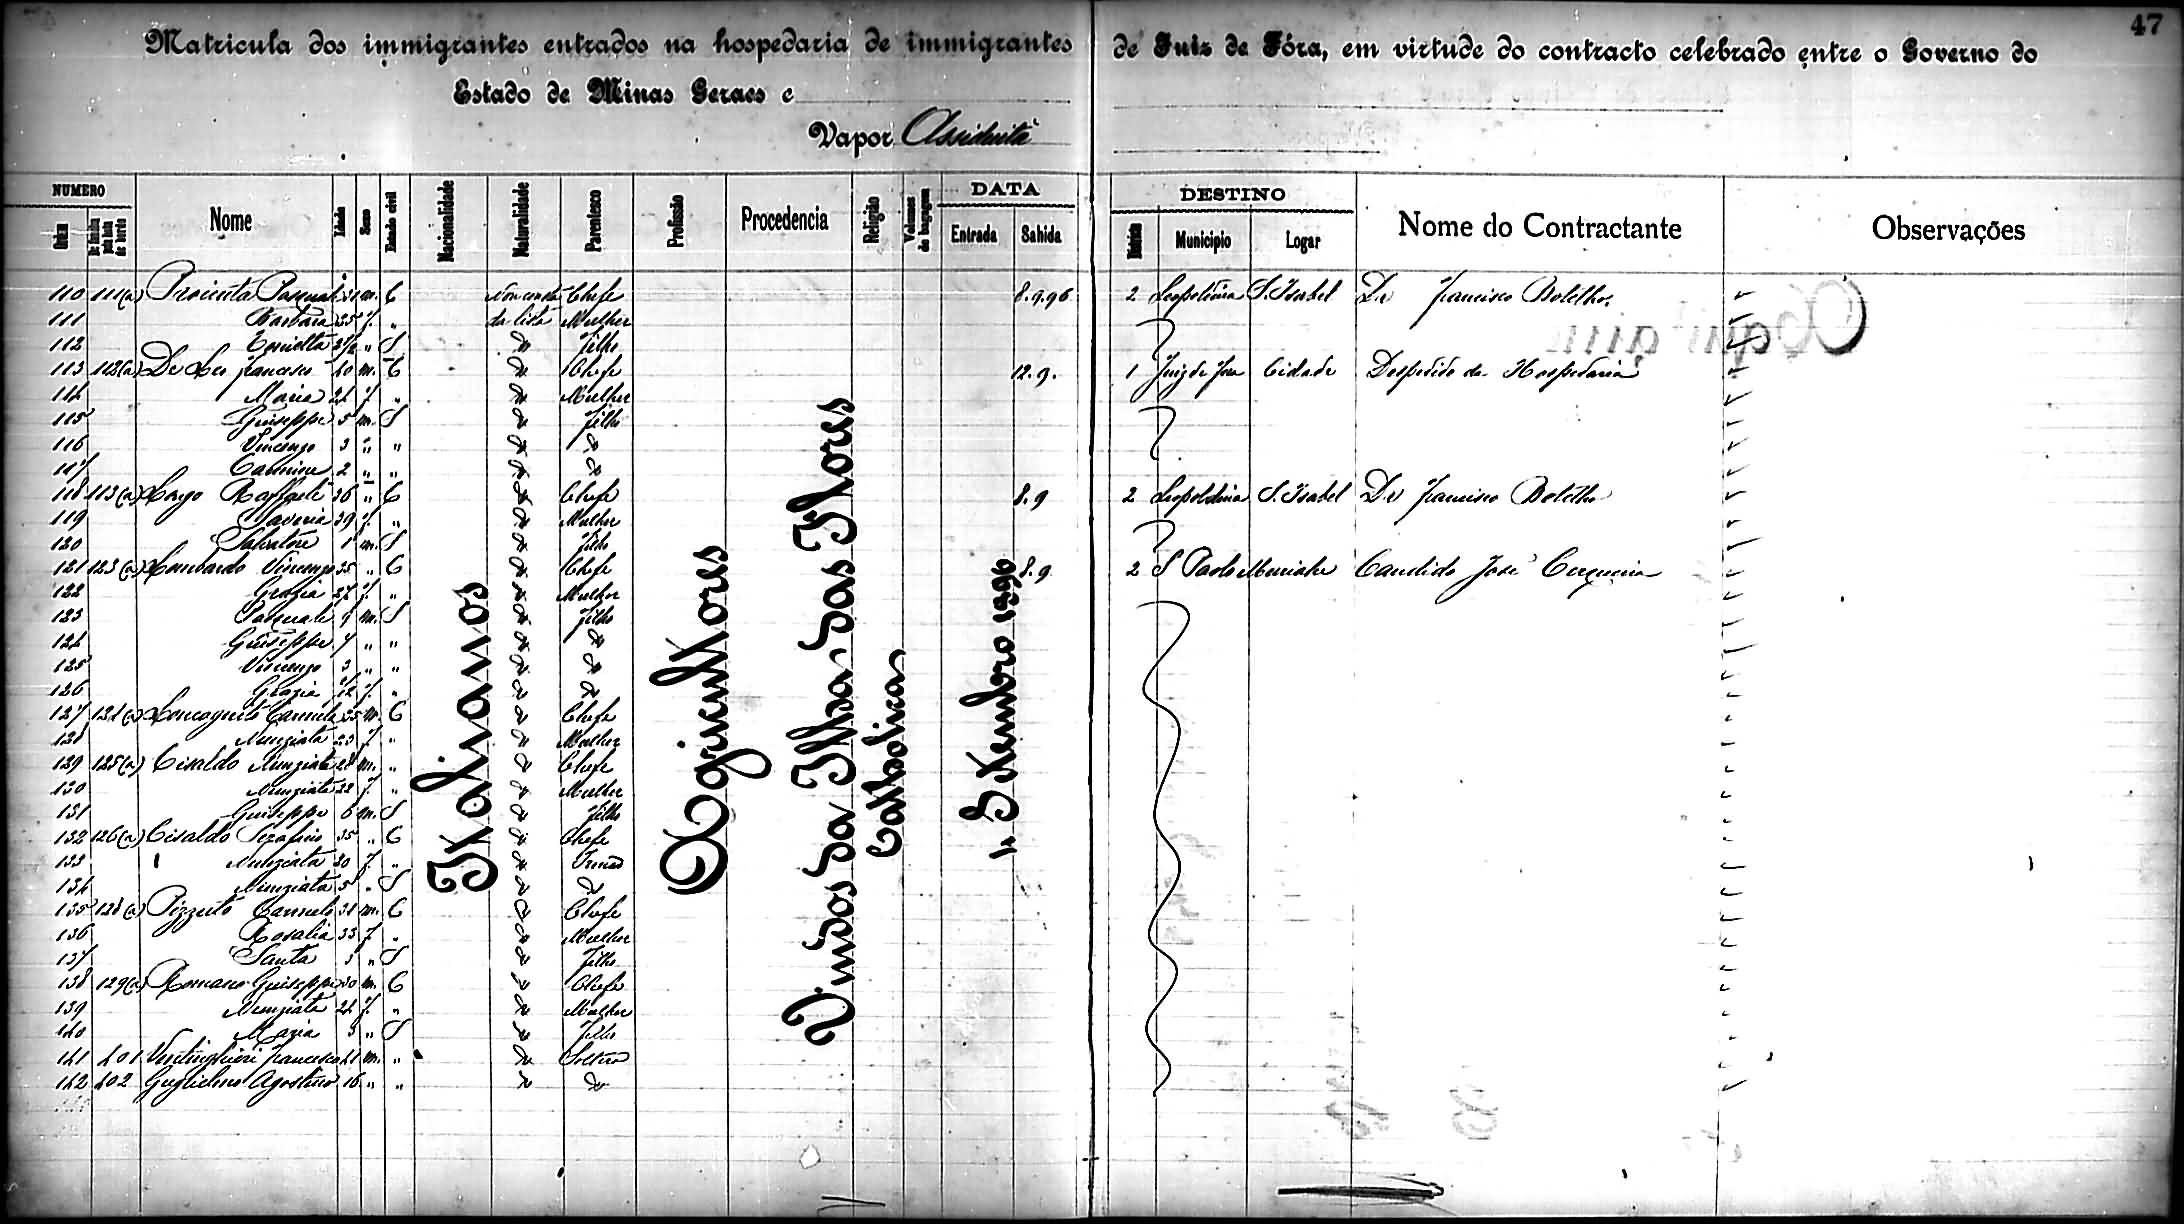 47
Matricula dos immigrantes entrados na hospedaria de immigrantes de Juiz de Fóra, em virtude do contracto celebrado entre o Governo do
Estado de Minas Geraes e
Vapor Assiduità
NUMERO DATA DESTINO
Ordem Nome Idade Sexo Estado civil Nacionalidade Naturalidade Parentesco Profissão Procedencia Religião Volumes de bagagem Entrada Sahida Districto Municipio Logar Nome do Contractante Observações
110 111(a) Pasquale 31 m. C Non consta Chefe 8.9.96 2 Leopoldina S. Isabel Dr Francisco Botelho
111 Barbara 25 f. " da lista Mulher
112 " S Filho
113 112(a) De Leo Francesco 40 m. C Chefe 12.9. 1 Juiz de Fora Cidade Despedido da Hospedaria
114 Maria f. " Mulher
115 Giuseppe 5 m. S Filho
116 Vincenzo 3 " "
117 Carmine 2 " "
118 113(a) Longo Raffaele 36 " C Chefe 8.9 2 Leopoldina S. Isabel Dr Francisco Botelho
119 Saveria 39 f. " Mulher
120 Salvatore 1 m. S Filho
121 123(a) Lombardo Vincenzo 35 " C Chefe 8.9 2 S Paolo Muriahe Candido José Cerqueira
122 Grazia 27 f. " Mulher
123 Pasquale 9 m. S Filho
124 Giuseppe 7 " "
125 Vincenzo 3 " "
126 Grazia f. "
127 124(a) Carmelo 25 m. C Chefe
128 Nunziata 23 f. " Mulher
129 125(a) Cisaldo 28 m. " Chefe
130 Nunziata 22 f. " Mulher
131 Giuseppe 6 m. S Filho
132 126(a) Cisaldo Serafino 35 " C Chefe
133 Nunziata 30 f. " Irmã
134 Nunziata 5 " S
135 128(a) Pizzuto Carmelo 38 m. C Chefe
136 Rosalia 33 f. " Mulher
137 Santa 3 " S Filho
138 129(a) Romano Giuseppe 30 m. C Chefe
139 Nunziata 24 f. " Mulher
140 Maria 3 " S Filho
141 401 Ventimiglieri Francesco 21 m. " Solteiro
142 402 Guglielmo Agostino 16 " "
Italianos
Agricultores
Vindos da Ilha das Flores
Catholica
1 Setembro 1896